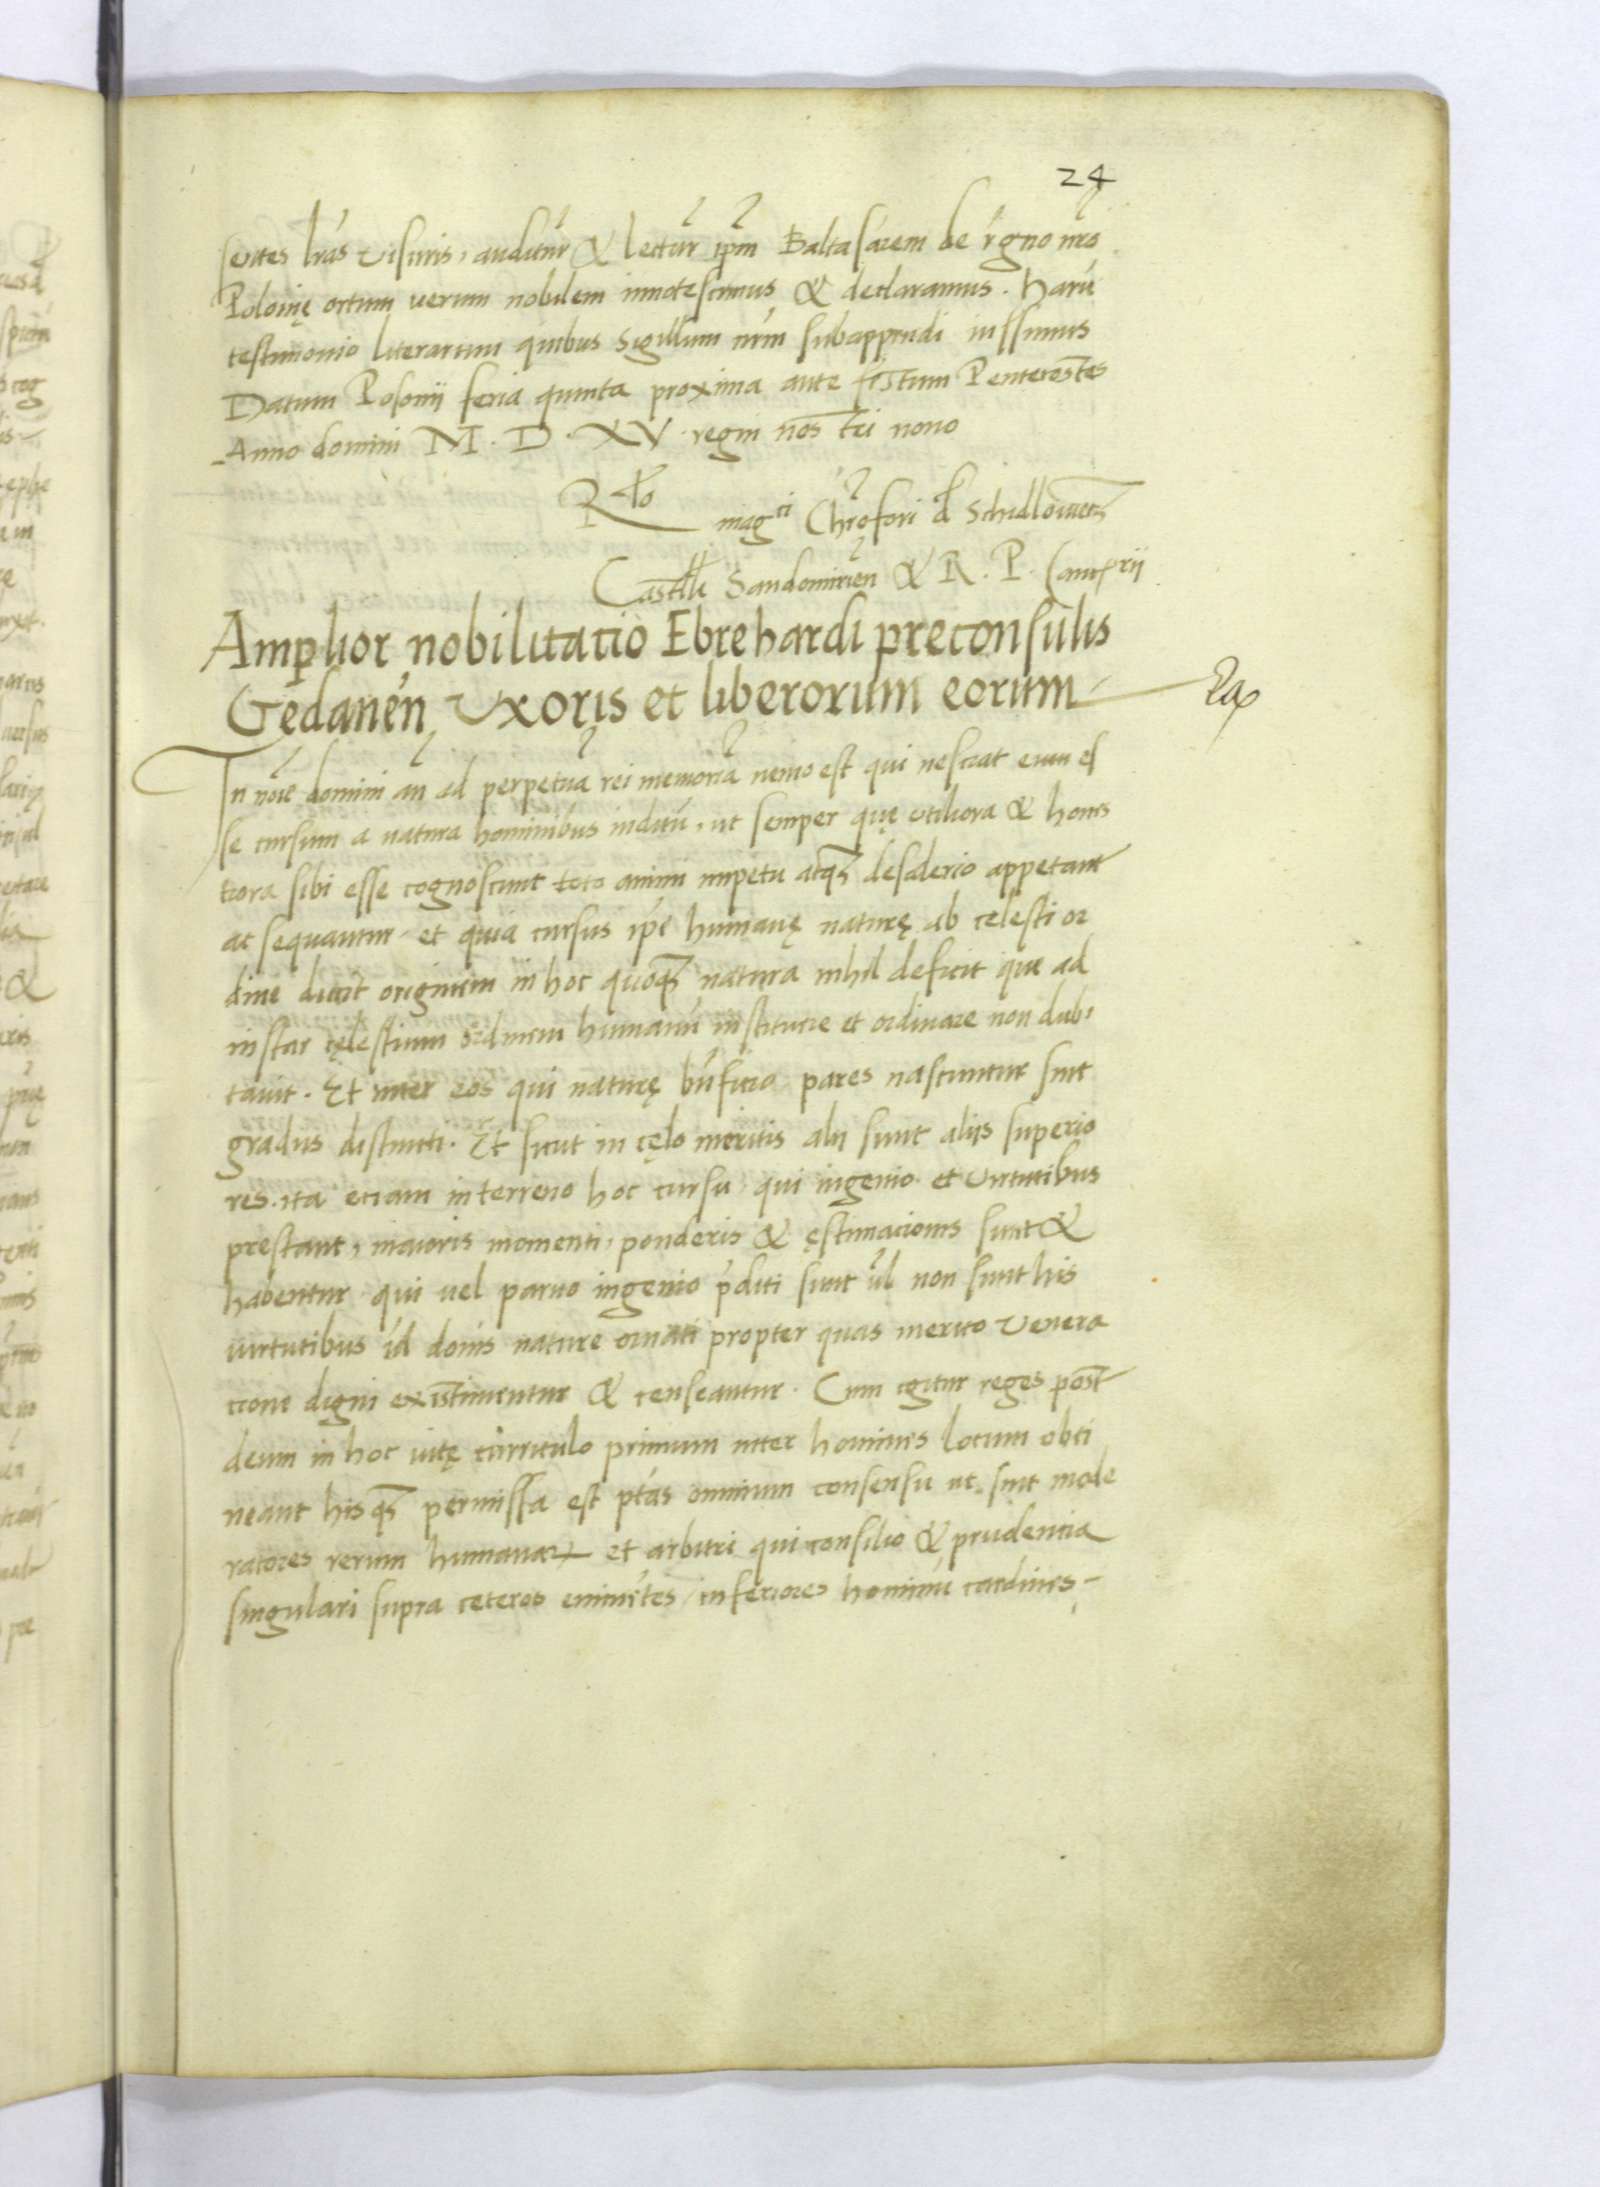 24
sentes lras visuris, auditur & lectur ipm Baltasarem de regno nro
Polonię ortum verum nobilem innotescimus & declaramus. Harū
testimonio literarum quibus Sigillum nrm subappendi iussimus
Datum Posonii feria quinta proxima ante festum Pentecostes
Anno domini M.D.XV. regni nos tri nono
Rlo magci Chrofori d Schidlowecz
Castelli Sandomirien & R. P. Cancrii
Amplior nobilitatio Ebrehardi preconsulis
Gedanen, Uxoris et liberorum eorum
In noīe domini an ad perpetuā rei memoriā nemo est qui nesciat eum es
se cursum a natura hominibus inditū, ut semper quę utiliora & hones
tiora sibi esse cognoscunt toto animi impetu atqȝ desiderio appetant
ac sequantur et quia cursus ipē humanę naturę ab celesti or
dine ducit originem in hoc quoqȝ natura nihil deficit que ad
instar cęlestium ordinem humanū instituere et ordinare non dubi
tavit. Et inter eos qui naturę bnficio pares nascuntur sint
gradus distincti. Et sicut in cęlo meritis alii sunt aliis superio
res. ita etiam in terreno hoc cursu qui ingenio et virtutibus
prestant, maioris momenti, ponderis & ęstimacionis sunt &
habentur qui vel parvo ingenio pditi sunt vl non sunt his
virtutibus id donis nature ornati propter quas merito venera
cione digni existimentur & censeantur. Cum igitur reges post
deum in hoc vitę curriculo primum inter homines locum obti
neant hisqȝ permissa est ptas omnium consensu ut sint mode
ratores rerum humanaꝝ et arbitri qui consilio & prudentia
singulari supra ceteros eminētes inferiores hominū cardines